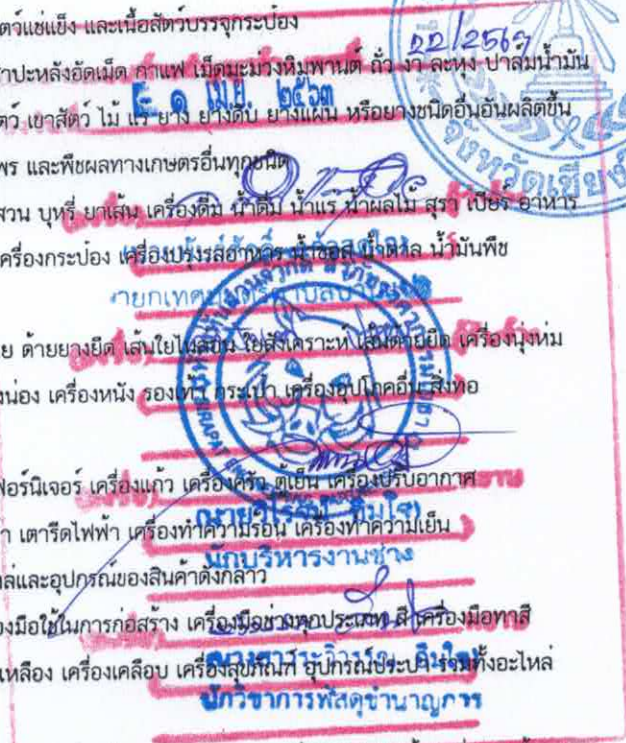 ตว์แช่แข็ง และเนื้อสัตว์บรรจุกระป๋อง
22/2563
าปะหลังอัดเม็ด กาแฟ เม็ดมะม่วงหิมพานต์ ถั่ว งา ละหุ่ง ปาล์มน้ำมัน
๑ เม.ย. ๒๕๖๓
ตว์ เขาสัตว์ ไม้ แร่ ยาง ยางดิบ ยางแผ่น หรือยางชนิดอื่นอันผลิตขึ้น
พร และพืชผลทางเกษตรอื่นทุกชนิด
สวน บุหรี่ ยาเส้น เครื่องดื่ม น้ำดื่ม น้ำแร่ น้ำผลไม้ สุรา เบียร์ อาหาร
ครื่องกระป๋อง เครื่องปรุงรสอาหาร น้ำซอส น้ำตาล น้ำมันพืช
นายกเทศมนตรีตำบล
ย ด้ายยางยืด เส้นใยไนล่อน ใยสังเคราะห์ เส้นด้ายยืด เครื่องนุ่งห่ม
งน่อง เครื่องหนัง รองเท้า กระเป๋า เครื่องอุปโภคอื่น สิ่งทอ
ฟอร์นิเจอร์ เครื่องแก้ว เครื่องครัว ตู้เย็น เครื่องปรับอากาศ
า เตารีดไฟฟ้า เครื่องทำความร้อน เครื่องทำความเย็น
นักบริหารงานช่าง
ล่และอุปกรณ์ของสินค้าดังกล่าว
องมือใช้ในการก่อสร้าง เครื่องมือช่างทุกประเภท สี เครื่องมือทาสี
เหลือง เครื่องเคลือบ เครื่องสุขภัณฑ์ อุปกรณ์ประปา รวมทั้งอะไหล่
นักวิชาการพัสดุชำนาญการ